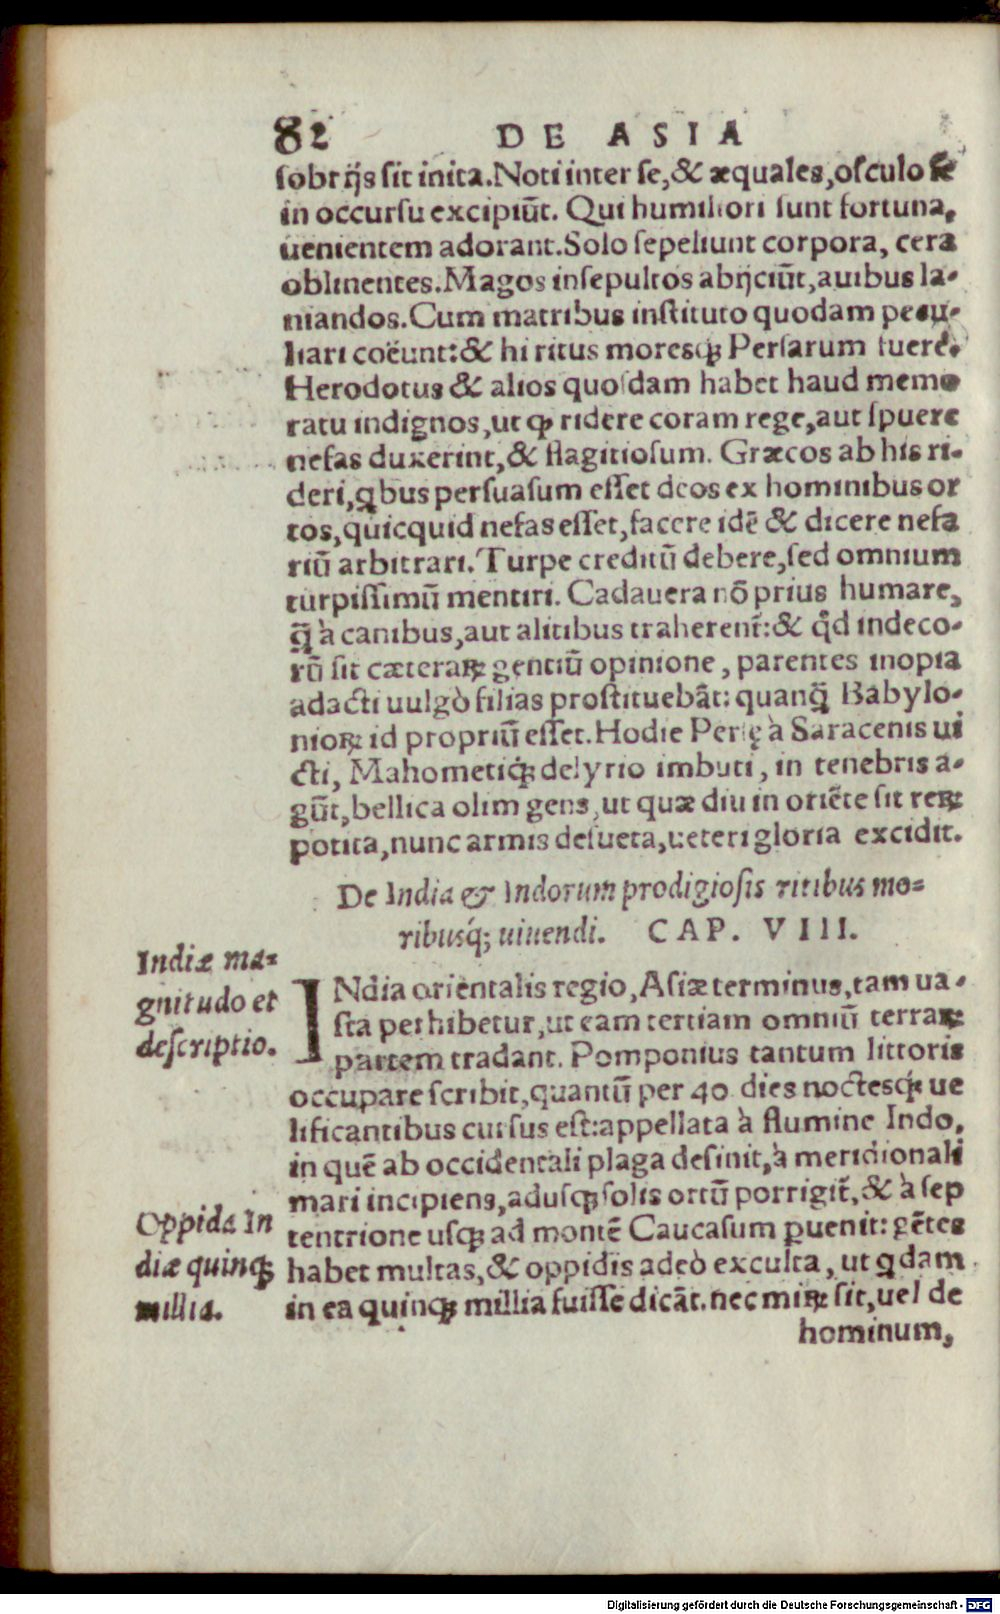 82 DE ASIA
sobrijs sit inita. Noti inter se, & æquales, osculo se
in occursu excipiūt. Qui humiliori sunt fortuna,
uenientem adorant. Solo sepeliunt corpora, cera
oblinentes. Magos insepultos abijciūt, auibus la-
niandos. Cum matribus instituto quodam pecu-
liari coëunt: & hi ritus moresqꝫ Persarum fuere.
Herodotus & alios quosdam habet haud memo
ratu indignos, ut ꝙ ridere coram rege, aut spuere
nefas duxerint, & flagitiosum. Græcos ab his ri-
deri, qbus persuasum esset deos ex hominibus or
tos, quicquid nefas esset, facere idē & dicere nefa
riū arbitrari. Turpe creditū debere, sed omnium
turpissimū mentiri. Cadauera nō prius humare,
q̄ à canibus, aut alitibus traherent̄: & qd́ indeco-
rū sit cæteraꝝ gentiū opinione, parentes inopia
adacti uulgò filias prostituebāt: quanq̄ Babylo-
nioꝝ id propriū esset. Hodie Persę à Saracenis ui
cti, Mahometiqꝫ delyrio imbuti, in tenebris a-
gūt, bellica olim gens, ut quæ diu in oriēte sit reꝝ
potita, nunc armis desueta, ueteri gloria excidit.
De India & Indorum prodigiosis ritibus mo=
ribusq́; uiuendi. CAP. VIII.
Indiæ ma=
gnitudo et
descriptio.
INdia orientalis regio, Asiæ terminus, tam ua-
sta perhibetur, ut eam tertiam omniū terraꝝ
partem tradant. Pomponius tantum littoris
occupare scribit, quantū per 40 dies noctesqꝫ ue
lificantibus cursus est: appellata à flumine Indo,
in quē ab occidentali plaga desinit, à meridionali
mari incipiens, adusqꝫ solis ortū porrigit̄, & à sep
tentrione usqꝫ ad montē Caucasum ꝑuenit: gētes
habet multas, & oppidis adeò exculta, ut qdam
in ea quinqꝫ millia fuisse dicāt. nec miꝝ sit, uel de
Oppida In
diæ quinqꝫ
millia.
hominum,
Digitalisierung gefördert durch die Deutsche Forschungsgemeinschaft - DFG